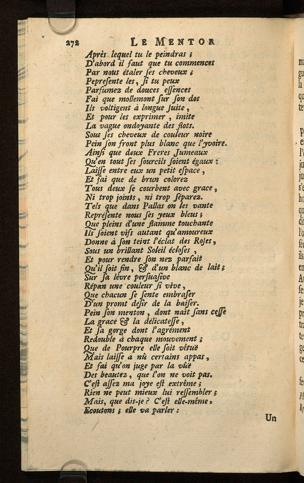 272 LE MENTOR
Après lequel tu le peindras ;
D'abord il faut que tu commences
Par nous étaler ses cheveux ;
Pepresente les, si tu peux
Parfumez de douces essences
Fai que mollement sur son dos
Ils voltigent à longue suite,
Et pour les exprimer, imite
La vague ondoyante des flots.
Sous ses cheveux de couleur noire
Pein son front plus blanc que l'yvoire.
Ainsi que deux Freres Jumeaux
Qu'en tout ses sourcils soient égaux :
Laisse entre eux un petit espace,
Et fai que de brun colorez
Tous deux se courbent avec grace,
Ni trop joints, ni trop separez.
Tels que dans Pallas on les vante
Représente nous ses yeux bleus ;
Que pleins d'une flamme touchante
Ils soient vifs autant qu'amoureux
Donne à son teint l'éclat des Roses,
Sous un brillant Soleil écloses,
Et pour rendre son nez parfait
Qu'il soit fin, & d'un blanc de lait ;
Sur sa lévre persuasive
Répan une couleur si vive,
Que chacun se sente embraser
D'un promt desir de la baiser.
Pein son menton, dont nait sans cesse
La grace & la délicatesse,
Et sa gorge dont l'agrément
Redouble à chaque mouvement ;
Que de Pourpre elle soit vêtuë
Mais laisse a nù certains appas,
Et fai qu'on juge par la vûë
Des beautez, que l'on ne voit pas.
C'est assez ma joye est extrême ;
Rien ne peut mieux lui ressembler ;
Mais, que dis-je ? C'est elle-même,
Ecoutons ; elle va parler :
Un